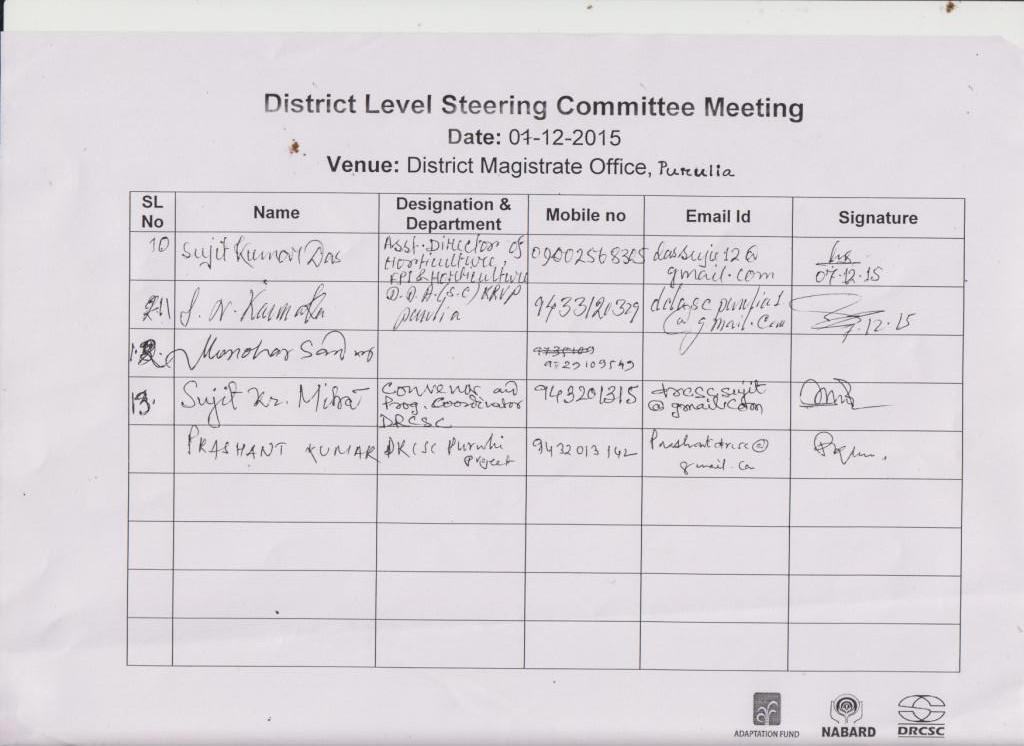 District Level Steering Committee Meeting
Date: 07-12-2015
Venue: District Magistrate Office, Purulia
SL No Name Designation & Department Mobile no Email Id Signature
10 Sujit Kumar Das Asst. Director of Horticulture, FPI & Horticulture 09002568365 dassuju12@gmail.com 07.12.15
11 Purulia 9433120329 @gmail.com 7.12.15
12 Manohar 9732109549
13. Sujit Kr. Mitra Convenor and Prog. Coordinator DRCSC 943201315 drcscsujit@gmail.com
PRASHANT KUMAR DRCSC Project 9432013142 Prashantdrcsc@gmail.co
ADAPTATION FUND
NABARD
DRCSC